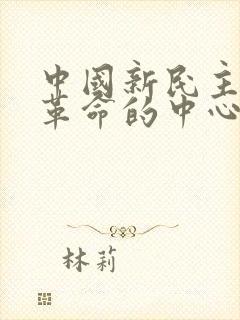 中國新民主
革命的中心
林莉